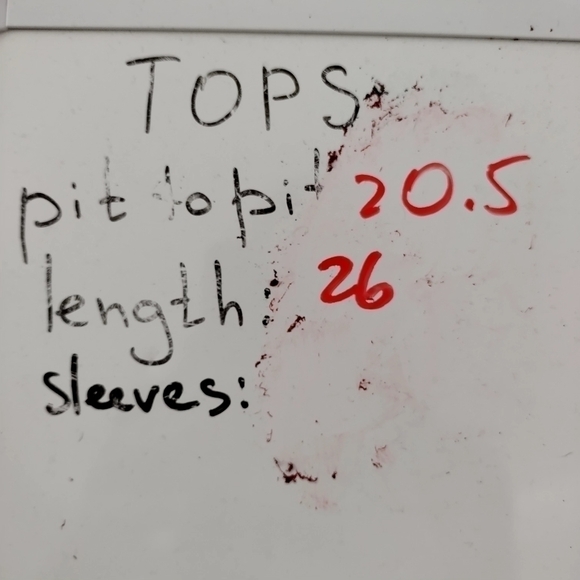 TOPS
pit to pit 20.5
length: 26
sleeves: